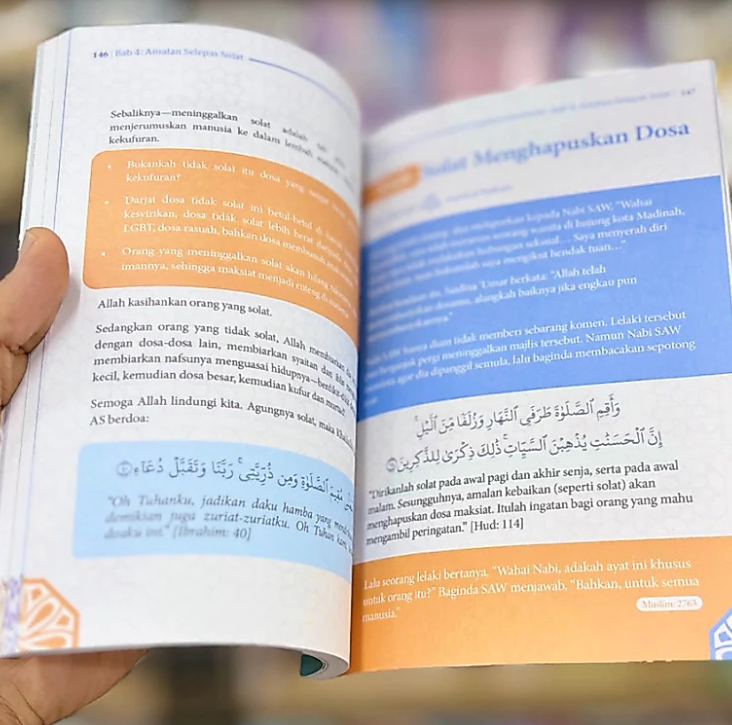 146 | Bab 4: Amalan Selepas Solat
Sebaliknya—meninggalkan solat adalah
menjerumuskan manusia ke dalam lembah
kekufuran.
• Bukankah tidak solat itu dosa yang
kekufuran?
• Darjat dosa tidak solat ini betul-betul di
kesyirikan, dosa tidak solat lebih berat daripada
LGBT, dosa rasuah, bahkan dosa membunuh
• Orang yang meninggalkan solat akan hilang
imannya, sehingga maksiat menjadi enteng
Allah kasihankan orang yang solat.
Sedangkan orang yang tidak solat, Allah membiarkan
dengan dosa-dosa lain, membiarkan syaitan dan
membiarkan nafsunya menguasai hidupnya—bermula
kecil, kemudian dosa besar, kemudian kufur dan murtad!
Semoga Allah lindungi kita. Agungnya solat, maka
AS berdoa:
مُقِيمَ ٱلصَّلَوٰةِ وَمِن ذُرِّيَّتِى ۚ رَبَّنَا وَتَقَبَّلْ دُعَآءِ
"Oh Tuhanku, jadikan daku hamba yang
demikian juga zuriat-zuriatku. Oh Tuhan kami,
doaku ini." [Ibrahim: 40]
147
Solat Menghapuskan Dosa
kepada Nabi SAW, "Wahai
seorang wanita di hujung kota Madinah,
melakukan hubungan seksual… Saya menyerah diri
saya mengikut hendak tuan…"
Sadina 'Umar berkata: "Allah telah
dosamu, alangkah baiknya jika engkau pun
SAW hanya diam tidak memberi sebarang komen. Lelaki tersebut
pergi meninggalkan majlis tersebut. Namun Nabi SAW
agar dia dipanggil semula, lalu baginda membacakan sepotong
وَأَقِمِ ٱلصَّلَوٰةَ طَرَفَىِ ٱلنَّهَارِ وَزُلَفًا مِّنَ ٱلَّيْلِ ۚ
إِنَّ ٱلْحَسَنَٰتِ يُذْهِبْنَ ٱلسَّيِّـَٔاتِ ۚ ذَٰلِكَ ذِكْرَىٰ لِلذَّٰكِرِينَ
"Dirikanlah solat pada awal pagi dan akhir senja, serta pada awal
malam. Sesungguhnya, amalan kebaikan (seperti solat) akan
menghapuskan dosa maksiat. Itulah ingatan bagi orang yang mahu
mengambil peringatan." [Hud: 114]
Lalu seorang lelaki bertanya, "Wahai Nabi, adakah ayat ini khusus
untuk orang itu?" Baginda SAW menjawab, "Bahkan, untuk semua
manusia."
Muslim: 2763